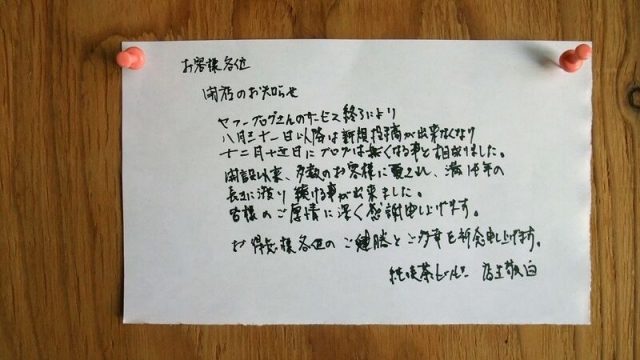 お客様各位
閉店のお知らせ
ヤフーブログさんのサービス終了により
八月三十一日以降は新規投稿が出来なくなり
十二月十五日にブログは無くなる事と相成りました。
開設以来、多数のお客様に覗かれ、満14年の
長きに渡り続ける事が出来ました。
皆様のご厚情に深く感謝申し上げます。
お得意様各位のご健勝とご多幸を祈念申し上げます。
純喫茶 店主敬白